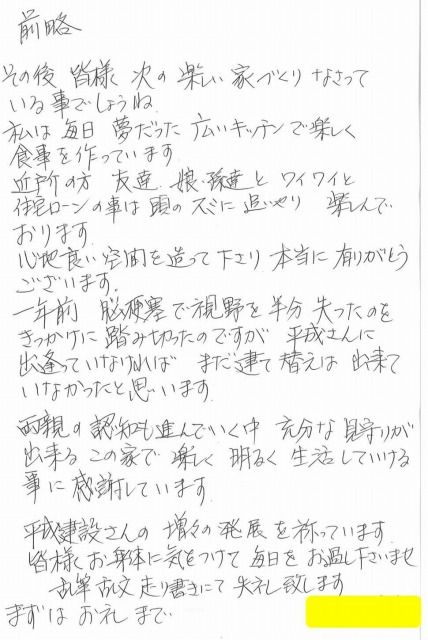 前略
その後 皆様 次の 楽しい 家づくり なさって
いる 事でしょうね.
私は 毎日 夢だった 広いキッチンで楽しく
食事を作っています.
近所の方 友達 娘・孫達と ワイワイと
住宅ローンの事は 頭の スミに 追いやり 楽しんで
おります.
心地良い空間を造って下さり 本当に 有りがとう
ございます.
一年前 脳梗塞で視野を半分 失ったのを
きっかけに 踏み切ったのですが 平成さんに
出逢っていなければ まだ建て替えは 出来て
いなかったと思います.
両親の 認知も進んでいく中 充分な 見守りが
出来る この家で 楽しく 明るく 生活していける
事に 感謝しています.
平成建設さんの 増々の 発展を祈っています.
皆様 お身体に気をつけて 毎日を お過し下さいませ
乱筆乱文 走り書きにて 失礼致します
まずは お礼 まで